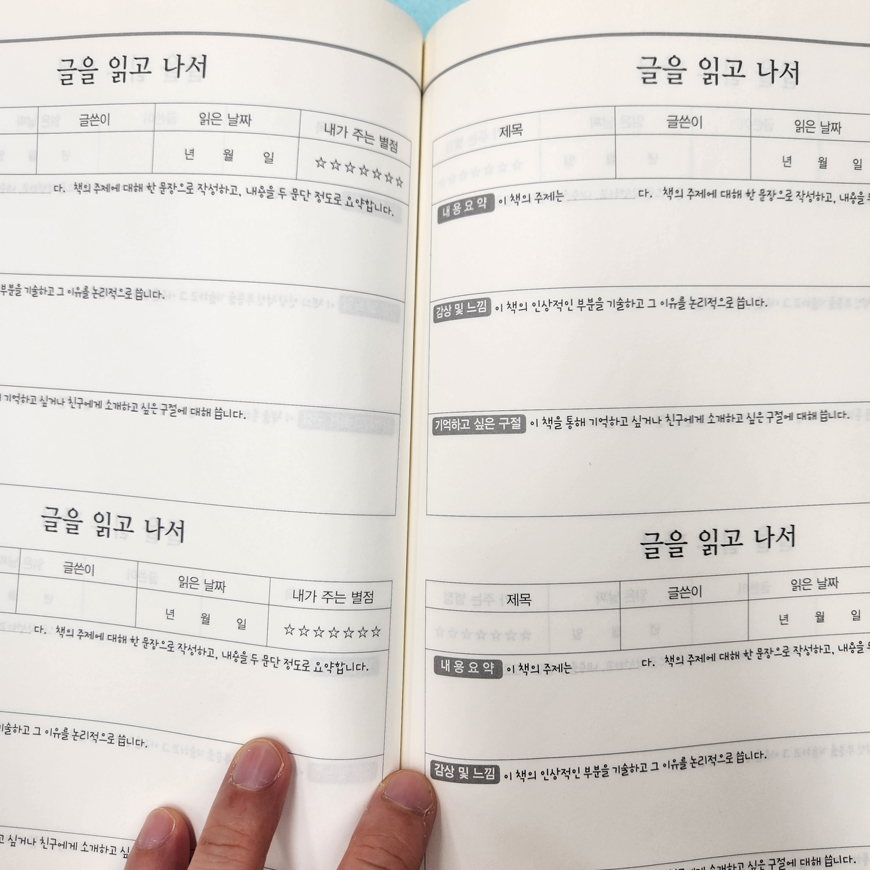 글을 읽고 나서
글쓴이 읽은 날짜 내가 주는 별점
년 월 일 ☆☆☆☆☆☆☆
다. 책의 주제에 대해 한 문장으로 작성하고, 내용을 두 문단 정도로 요약합니다.
부분을 기술하고 그 이유를 논리적으로 씁니다.
기억하고 싶거나 친구에게 소개하고 싶은 구절에 대해 씁니다.
글을 읽고 나서
글쓴이 읽은 날짜 내가 주는 별점
년 월 일 ☆☆☆☆☆☆☆
다. 책의 주제에 대해 한 문장으로 작성하고, 내용을 두 문단 정도로 요약합니다.
기술하고 그 이유를 논리적으로 씁니다.
고 싶거나 친구에게 소개하고 싶
글을 읽고 나서
제목 글쓴이 읽은 날짜
년 월 일
내용요약 이 책의 주제는 다. 책의 주제에 대해 한 문장으로 작성하고, 내용을 두
감상 및 느낌 이 책의 인상적인 부분을 기술하고 그 이유를 논리적으로 씁니다.
기억하고 싶은 구절 이 책을 통해 기억하고 싶거나 친구에게 소개하고 싶은 구절에 대해 씁니다.
글을 읽고 나서
제목 글쓴이 읽은 날짜
년 월 일
내용요약 이 책의 주제는 다. 책의 주제에 대해 한 문장으로 작성하고, 내용을 두
감상 및 느낌 이 책의 인상적인 부분을 기술하고 그 이유를 논리적으로 씁니다.
소개하고 싶은 구절에 대해 씁니다.